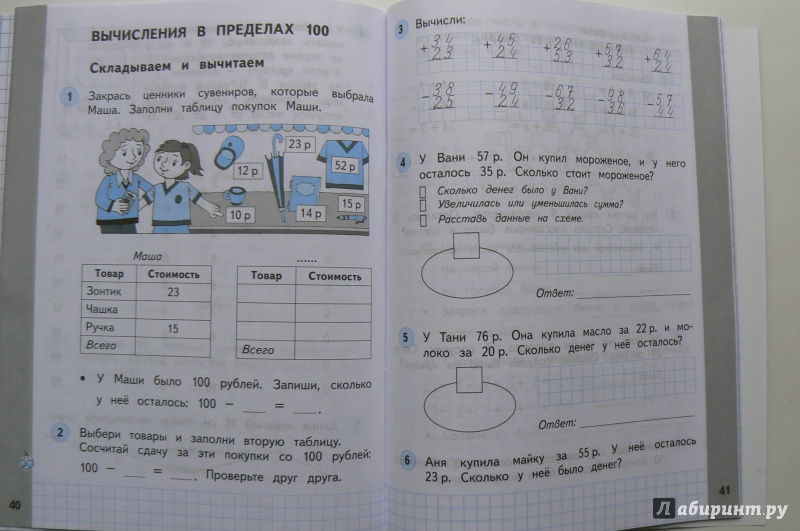 ВЫЧИСЛЕНИЯ В ПРЕДЕЛАХ 100
Складываем и вычитаем
1 Закрась ценники сувениров, которые выбрала
Маша. Заполни таблицу покупок Маши.
23 р
12 р
52 р
10 р
14 р
15 р
Маша ......
Товар Стоимость Товар Стоимость
Зонтик 23
Чашка
Ручка 15
Всего Всего
• У Маши было 100 рублей. Запиши, сколько
у неё осталось: 100 – ___ = ___.
2 Выбери товары и заполни вторую таблицу.
Сосчитай сдачу за эти покупки со 100 рублей:
100 – ___ = ___. Проверьте друг друга.
40
3 Вычисли:
+ 34 + 45 + 26 + 57 + 64
23 24 53 32 24
– 38 – 49 – 67 – 98 – 57
25 24 32 36 44
4 У Вани 57 р. Он купил мороженое, и у него
осталось 35 р. Сколько стоит мороженое?
Сколько денег было у Вани?
Увеличилась или уменьшилась сумма?
Расставь данные на схеме.
Ответ:
5 У Тани 76 р. Она купила масло за 22 р. и мо-
локо за 20 р. Сколько денег у неё осталось?
Ответ:
6 Аня купила майку за 55 р. У неё осталось
23 р. Сколько у неё было денег?
41
Лабиринт.ру